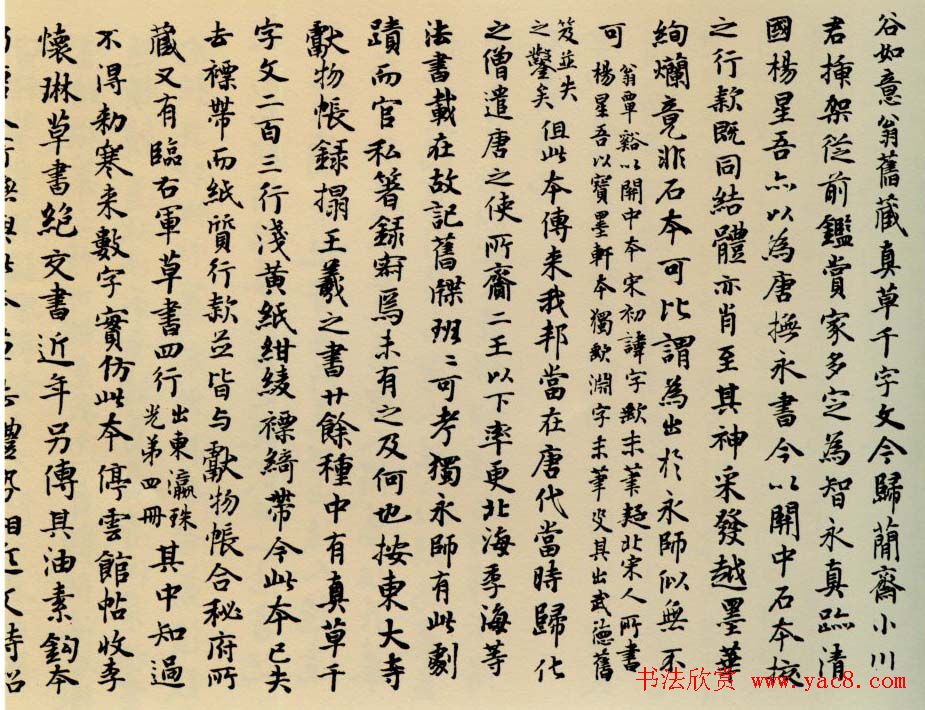 谷如意翁舊藏真草千字文今歸蕑齋小川
君插架從前鑑賞家多定為智永真跡清
國楊星吾亦以為唐撫永書今以關中石本挍
之行款既同結體亦肖至其神采發越墨華
絢爛竟非石本可比謂為出於永師似無不
可
翁覃谿以關中本宋初諱字缺末筆疑北宋人所書
楊星吾以寶墨軒本獨缺淵字末筆定其出武德舊
笈並失
之鑿矣
但此本傳来我邦當在唐代當時歸化
之僧遣唐之使所齎二王以下率更北海季海等
法書載在故記舊牒班〻可考獨永師有此劇
蹟而官私箸録寂焉未有之及何也按東大寺
獻物帳録搨王羲之書廿餘種中有真草千
字文二百三行淺黃紙紺綾褾綺帶今此本已失
去褾帶而紙質行款並皆与獻物帳合秘府所
藏又有臨右軍草書四行
出東瀛珠
光弟四冊
其中知過
不得勅寒来數字實仿此本停雲館帖收李
懷琳草書絕交書近年另傳其油素鈎本
书法欣赏 www.yac8.com